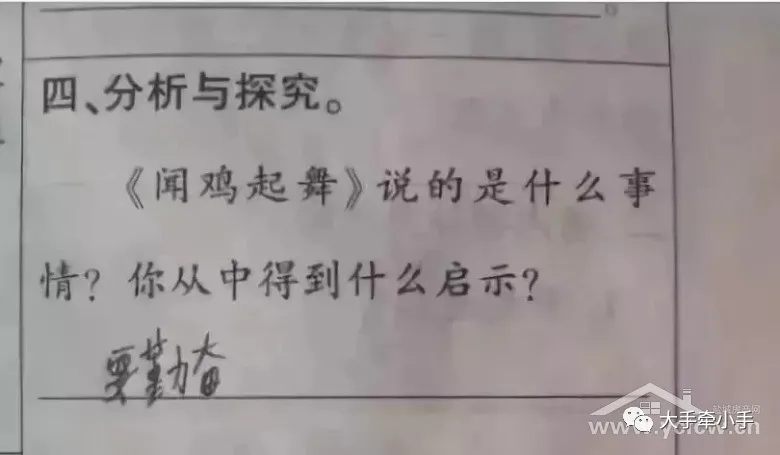 四、分析与探究。
《闻鸡起舞》说的是什么事
情?你从中得到什么启示?
要勤奋
盐城房产网
www.ycfcw.cn
大手牵小手